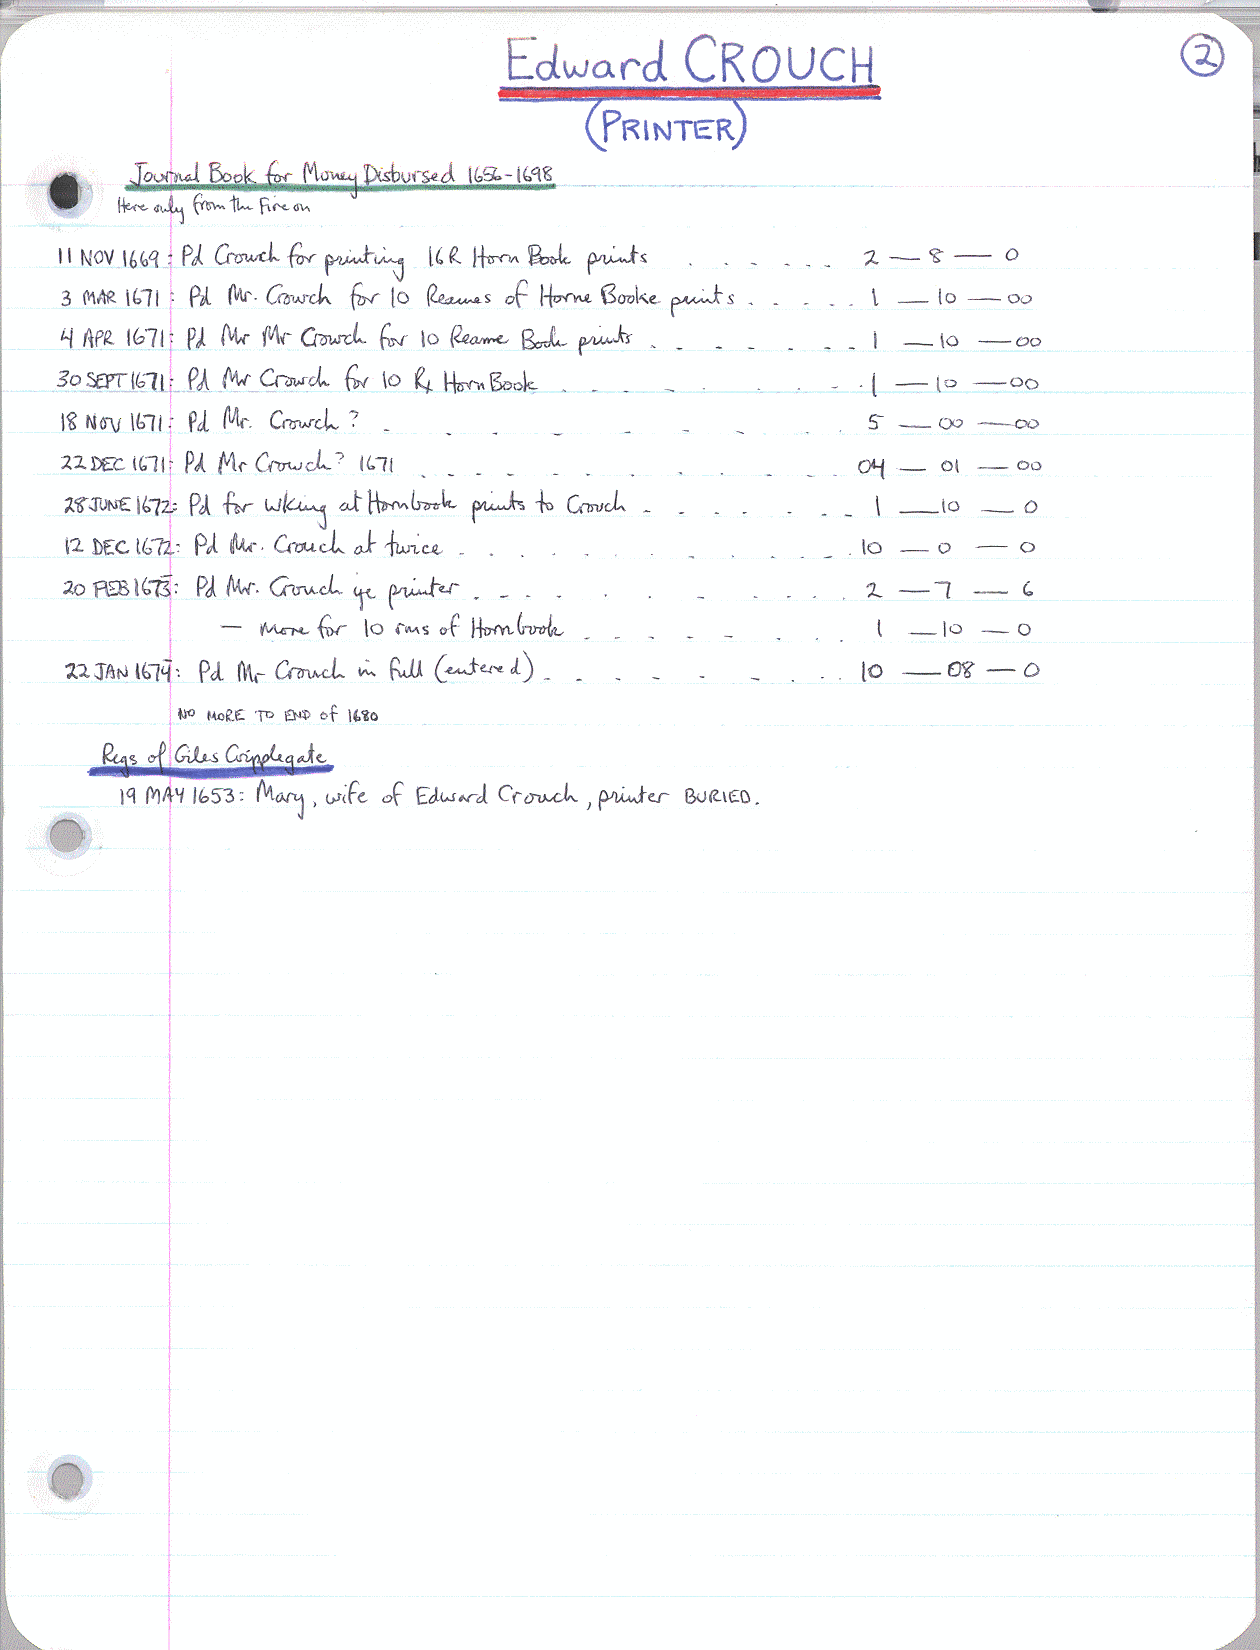 Edward CROUCH
2
(PRINTER)
Journal Book for Money Disbursed 1656-1698
Here only from the Fire on
11 NOV 1669: Pd Crowch for printing 16R Horn Book prints . . . . . . 2 — 8 — 0
3 MAR 1671: Pd Mr. Crowch for 10 Reames of Horne Booke prints . . . . . . 1 — 10 — 00
4 APR 1671: Pd Mr Mr Crowch for 10 Reame Book prints . . . . . . . 1 — 10 — 00
30 SEPT 1671: Pd Mr Crowch for 10 R Horn Book . . . . . . 1 — 10 — 00
18 NOV 1671: Pd Mr. Crowch? . . . . . . . . 5 — 00 — 00
22 DEC 1671: Pd Mr Crowch? 1671 . . . . . . . . 04 — 01 — 00
28 JUNE 1672: Pd for wking at Hornbook prints to Crouch . . . . . . . 1 — 10 — 0
12 DEC 1672: Pd Mr. Crouch at twice . . . . . . . . . 10 — 0 — 0
20 FEB 1673: Pd Mr. Crouch ye printer . . . . . . . . . 2 — 7 — 6
— more for 10 rms of Hornbook . . . . . . . . 1 — 10 — 0
22 JAN 1674: Pd Mr Crouch in full (entered) . . . . . . . . 10 — 08 — 0
NO MORE TO END of 1680
Regs of Giles Cripplegate
19 MAY 1653: Mary, wife of Edward Crouch, printer BURIED.